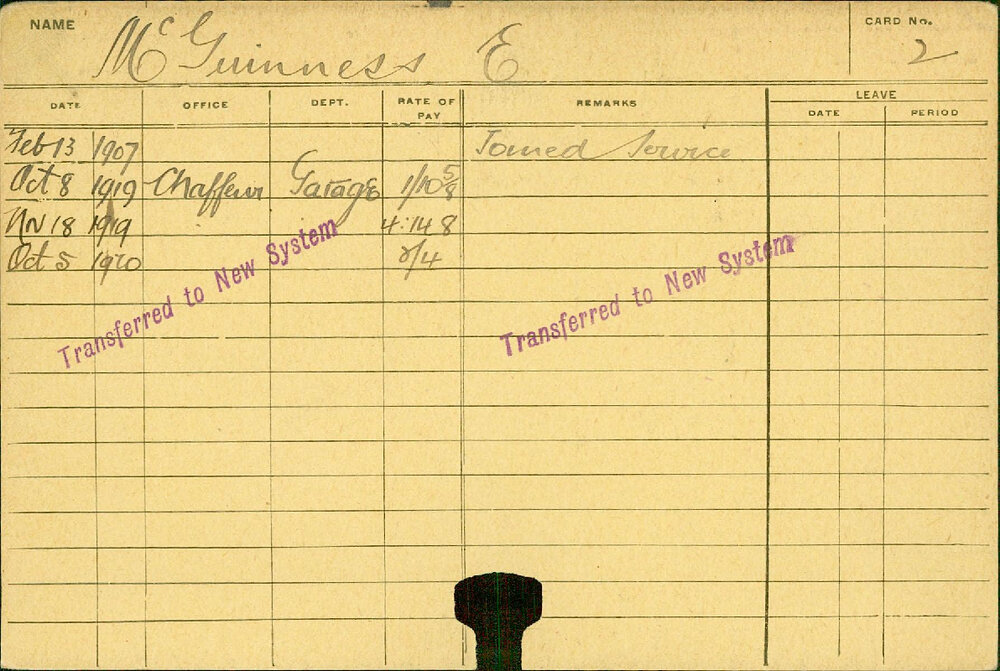 NAME McGuinness E CARD No. 2
DATE OFFICE DEPT. RATE OF PAY REMARKS LEAVE
DATE PERIOD
Feb 13 1907 Joined Service
Oct 8 1919 Chaffeur Garage 1/10 5/8
Nov 18 1919 4:14 8
Oct 5 1920 2/4
Transferred to New System
Transferred to New System